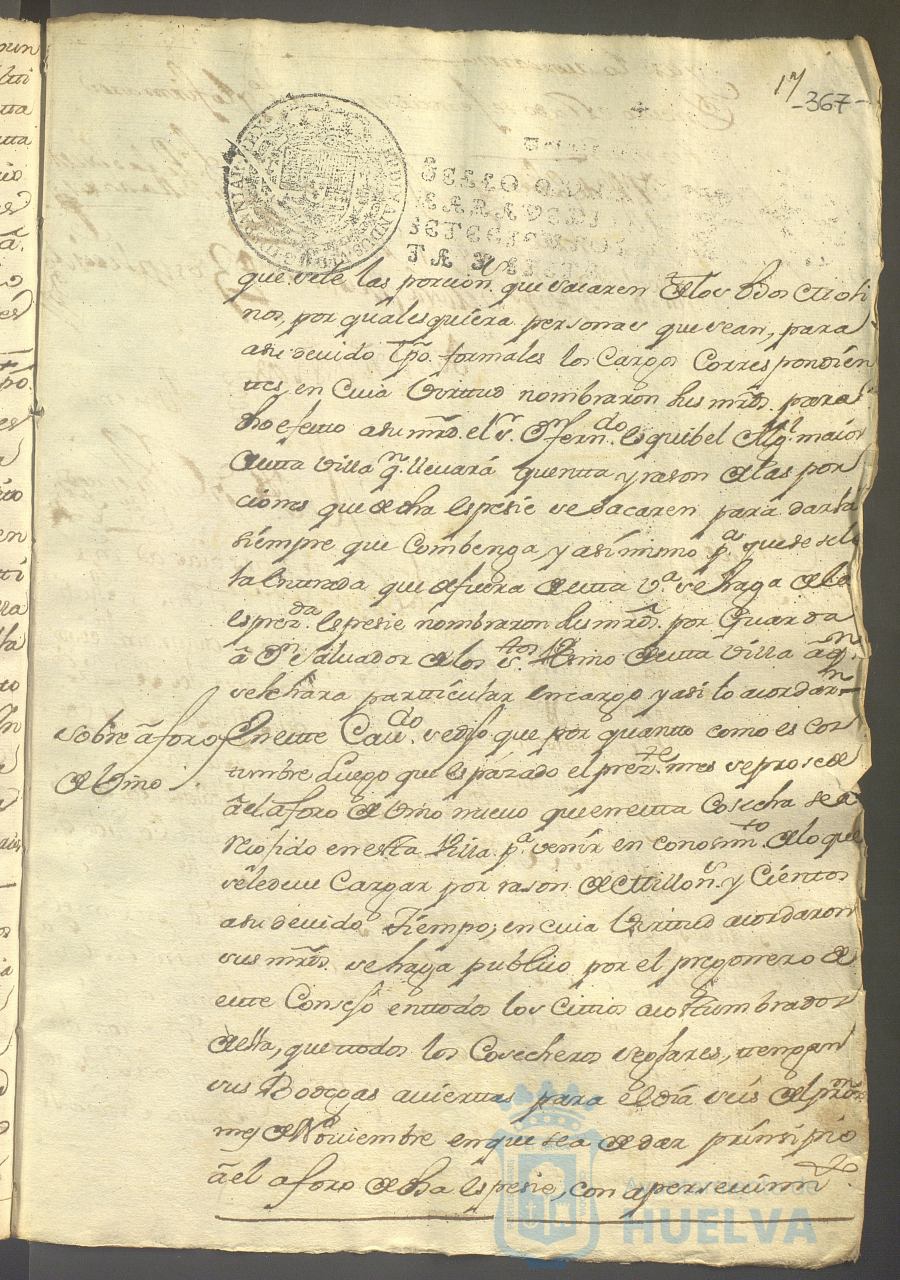 17
-367-
que sele las porcion. que sacaren de los dhos Molinos, por quales quiera personas que sean, para
a su devido tpo. formales los Cargos Correspondien
tes, en Cuia Virtud nombraron sus mrds. para
dho efetto a su mrd. el sr. Dn. Ferndo. Esquibel Alg.l maior
de esta Villa q.n llevará quentta y rason de las por
ciones que de dha Espesie se sacaren para darla
siempre que Combenga, y asi mismo pa. que se sele
la Entrada que de fuera de esta va. se haga de la
esprezda. Espesie nombraron sus mrds. por Guarda
â Dn. Salvador de los stos. Vno. de esta Villa â qn.
se le hara particular encargo y asi lo acordarn
Sobre âforo
de Vino
En este Cavdo. se dijo que por quanto como es cos
tumbre Luego que es pazado el prezte. mes se prosede
âel aforo de Vino nuevo que en esta Cosecha se â
recojido en esta Villa pa. venir en conosimto. de lo que
se le deve Cargar por rason de Millons. y Cientos
a su devido Tiempo; en cuia Virtud acordaron
sus mrds. se haga publico por el pregonero de
este Consejo en ttodos los Cittios acostumbrados
de ella, que ttodos los Cosecheros seglares, ttengan
sus Bodegas aviertas para el dia seis del proxmo.
mes de Noviembre en que se a de dar prinsipio
âel aforo de dha Espesie, con apersevimto.
Ayuntamiento de
HUELVA